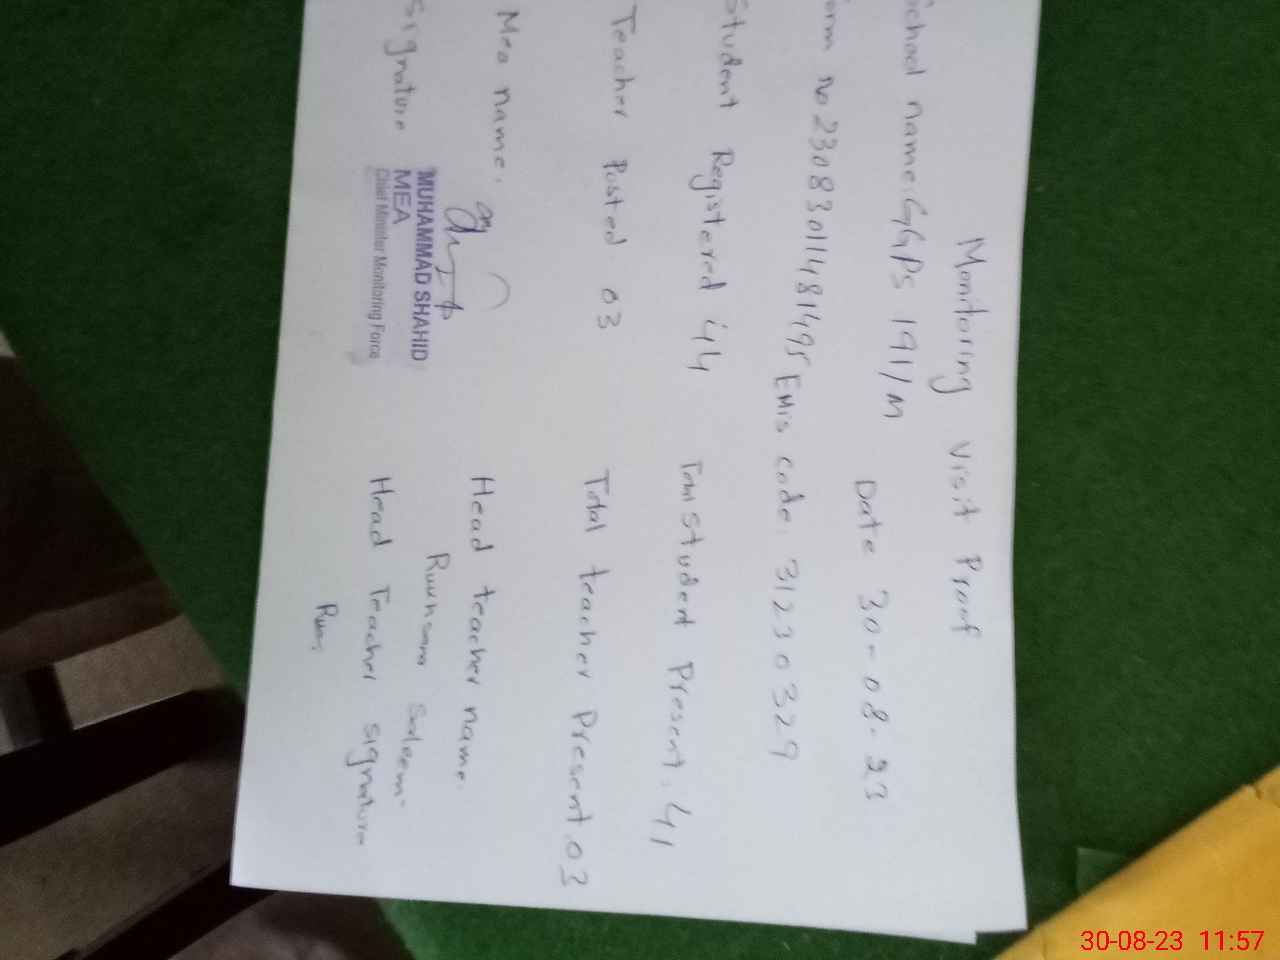 Monitoring Visit Proof
School name: GGPS 191/M Date 30-08-23
orm no 23083011481495 Emis code: 31230329
Student Registered 44 Student Present: 41
Teacher Posted 03 Total teacher Present 03
Mea name: Head teacher name:
Saleem
Signature MUHAMMAD SHAHID Head Teacher signature
MEA
Chief Minister Monitoring Force
30-08-23 11:57